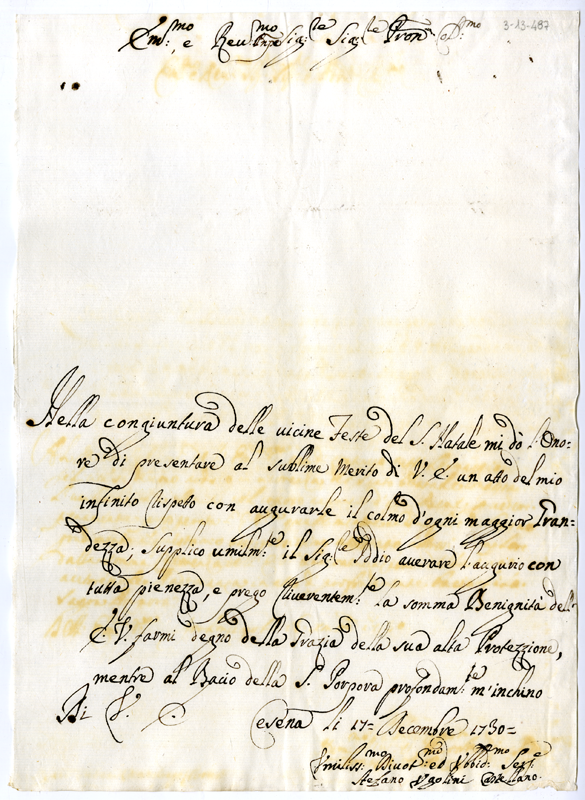 3-13-487
Em:mo e Reu:mo Sig:re Sig:re Pron Col:mo
Nella congiuntura delle uicine Feste del S. Natale mi dò l'Ono=
re di presentare al sublime Merito di V. E. un atto del mio
infinito Rispeto con augurarle il colmo d'ogni maggior Gran=
dezza; Supplico umilm:te il Sig:re Iddio auerare l'augurio con
tutta pienezza, e prego Riuerentem:te la somma Benignità dell'
E. V. farmi degno della Grazia della sua alta Protezzione,
mentre al Bacio della S. Porpora profondam:te m'inchino
Di V. E. Cesena li 17= Decembre 1730=
Vmiliss:mo Diuot:mo ed Obbid:mo Seru:e
Stefano Vgolini Castellano